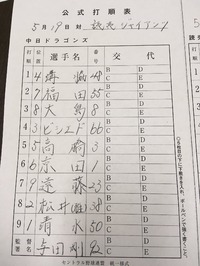 公式打順表
5月19日対 読売ジャイアンツ
中日ドラゴンズ
打順 位置 選手名 番号 交代
1 4 溝脇 48 B D C E
2 7 福田 55 B D C E
3 8 大島 8 B D C E
4 3 ビシエド 66 B D C E
5 5 高橋 3 B D C E
6 6 京田 1 B D C E
7 9 遠藤 23 B D C E
8 2 松井雅 38 B D C E
9 1 清水 50 B D C E
監督 署名 与田剛 92
セントラル野球連盟 統一様式